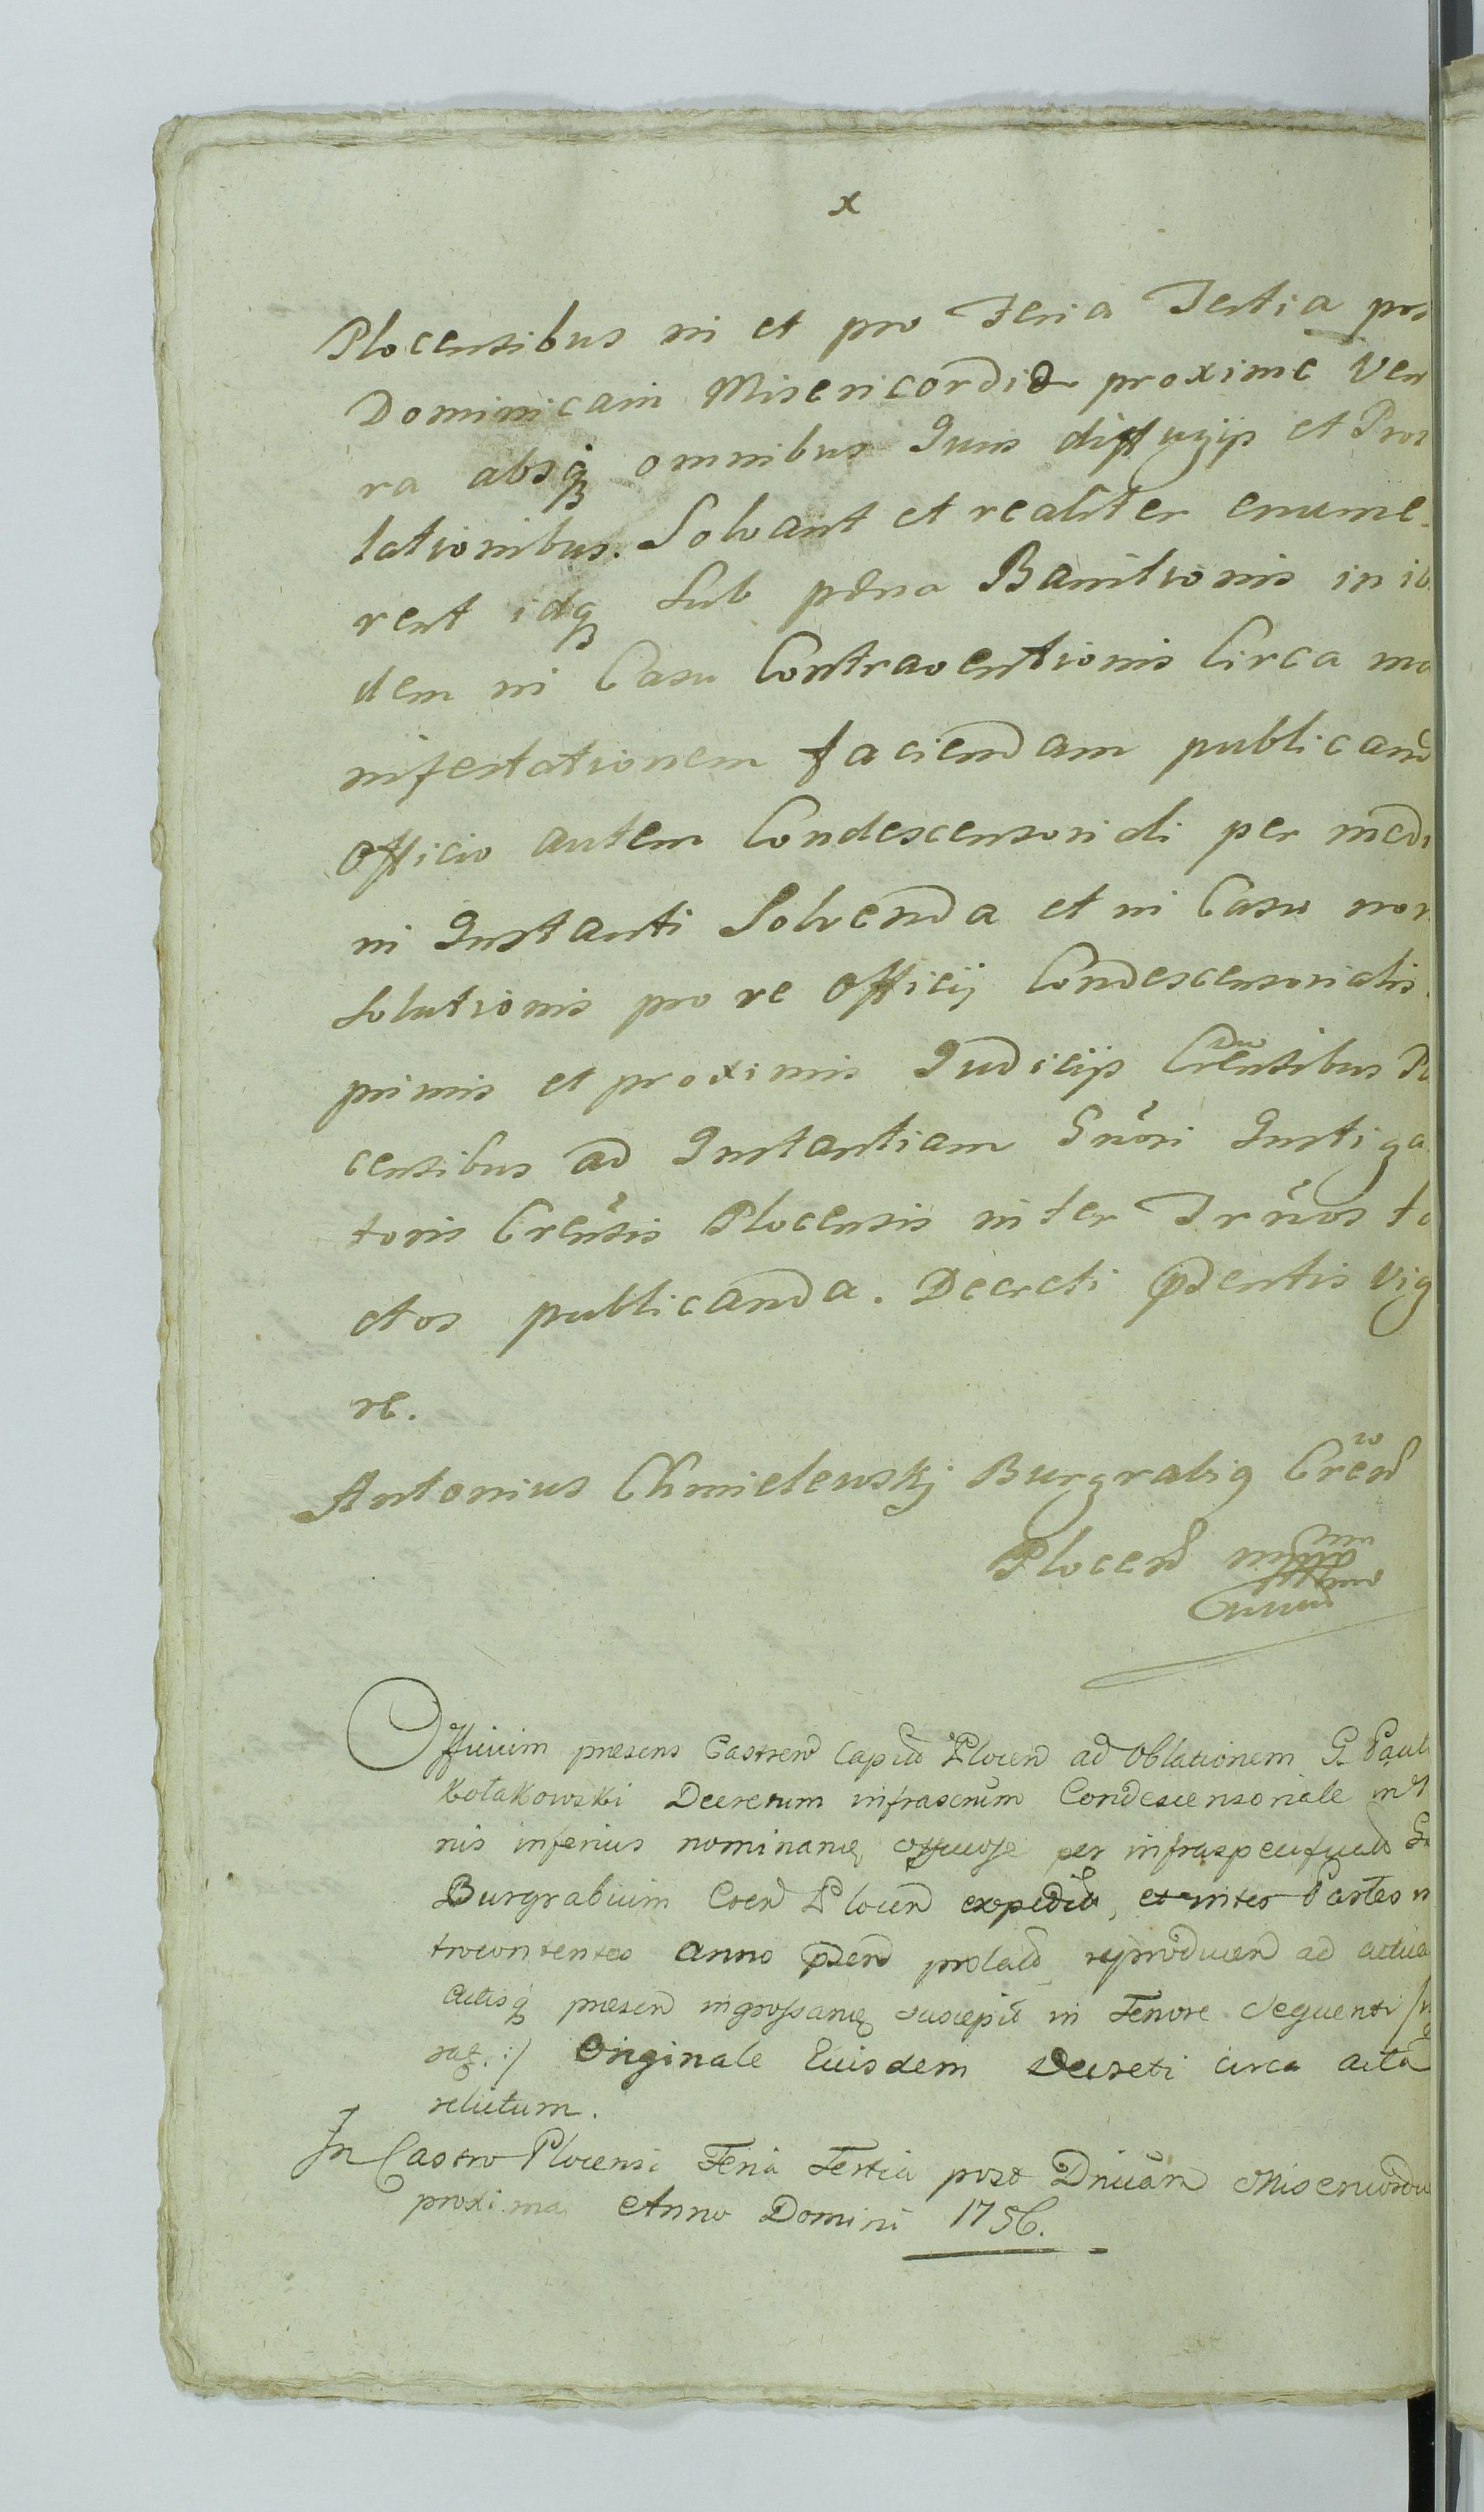 x
Plocensibus in et pro Feria Tertia pos
Dominicam Misericordiæ proxime Ven
ra absq omnibus Juris diffugijs et Pros
lationibus. Solvant et realiter enume-
rent idq sub pœna Banitionis in ib
dem in Casu Contraventionis Circa ma
nifestationem faciendam publicand
Officio autem Condescensoriali per medi
in Instanti Solvenda et in Casu non
Solutionis pro re Officij Condescensorialis
primis et proximis Judicijs Crensibus Pl
censibus ad Instantiam Gnosi Instiga
toris Crensis Plocensis inter Trnos fa
ctos publicanda. Decreti pdentis Vig
re.
Antonius Chmielewskj Burgrabig Cren
Plocen
Officium præsens Castren Capit Plocen ad Oblationem G Pauli
Kołakowski Decretum infrascrtum Condescensoriale int
nis inferius nominaneq officiose per infraspecificat G
Burgrabium Cren Plocen expedit, et inter Partes in
trocontentas anno psen prolat reproducen ad actica
Actisq præsen ingrossaneq suscepit in Tenore Sequenti
sat. :/ Originale Eiusdem Decreti circa acta
relictum.
In Castro Plocensi Feria Tertia post Dnicam Misericordiæ
proxima Anno Domini 1756.